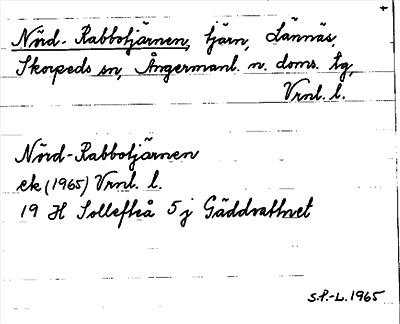 Nörd-Rabbotjärnen, tjärn, Lännäs,
Skorpeds sn, Ångermanl. n. doms. tg,
Vrnl. l.
Nörd-Rabbotjärnen
ek (1965) Vrnl. l.
19 H Sollefteå 5 j Gäddvattnet
S.P.-L. 1965